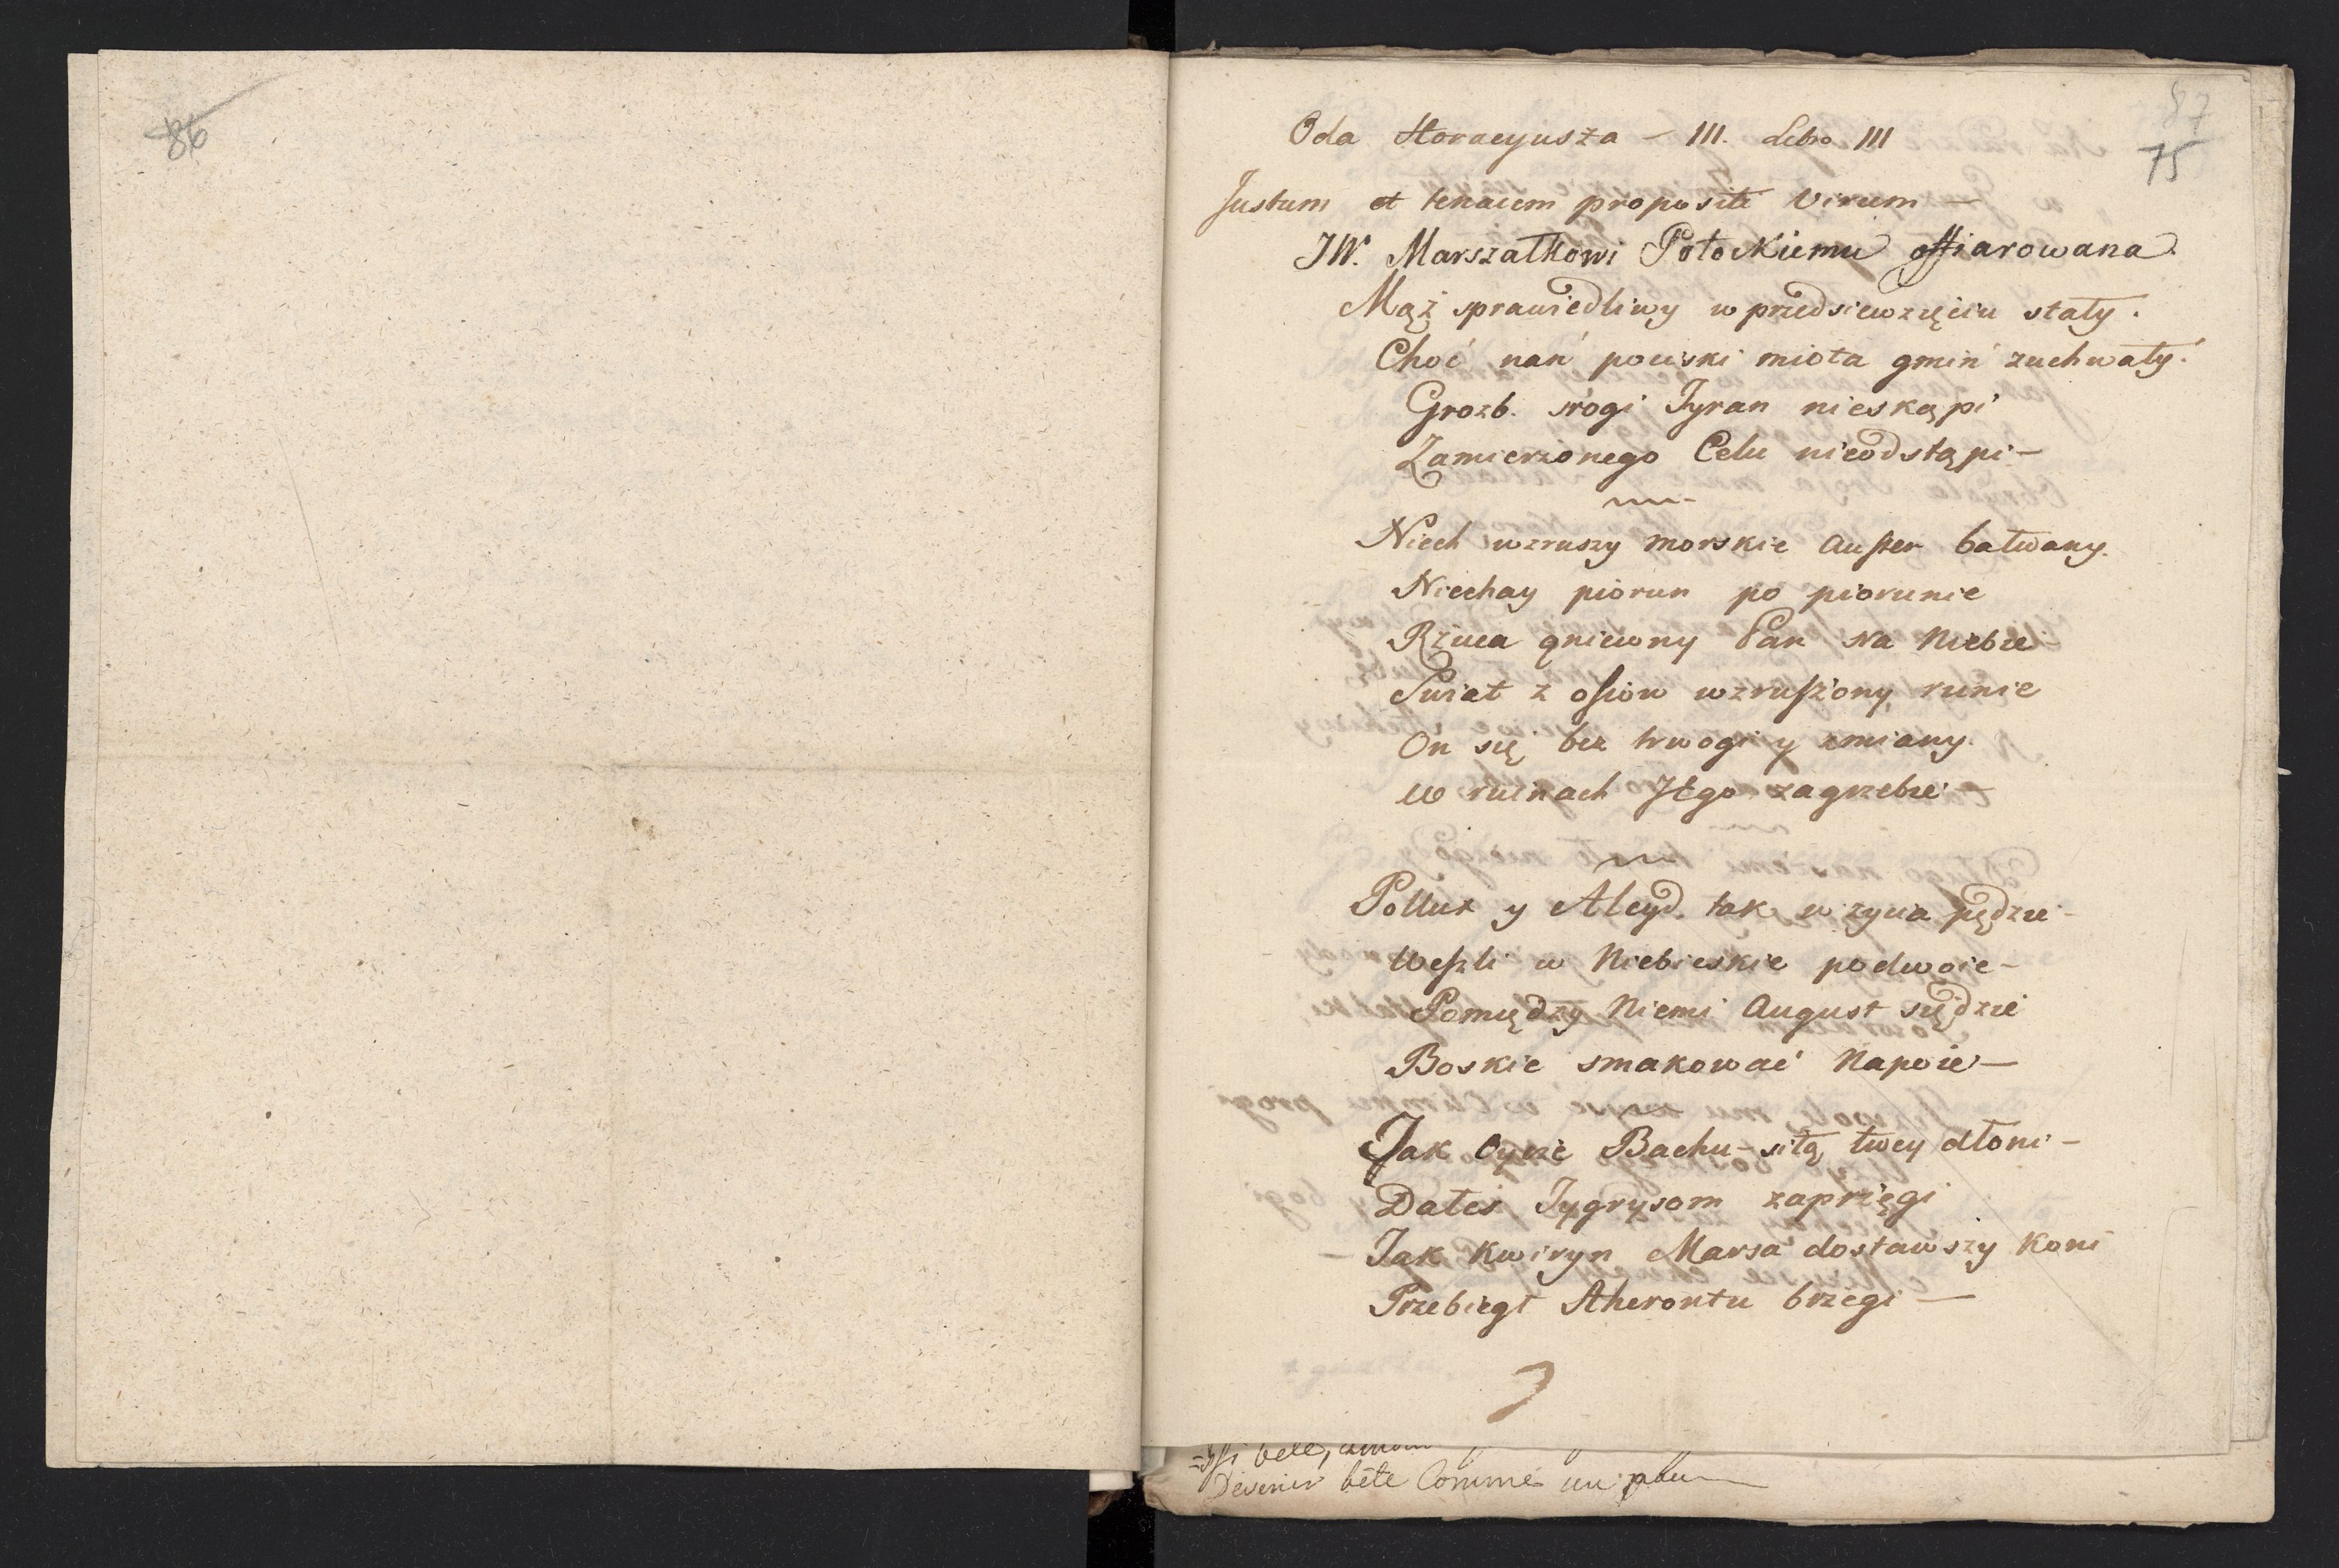 86
87
75
Oda Horacyusza – III. Libro III
Justum et tenacem propositi Virum —
JW. Marszałkowi Potockiemu offiarowana.
Mąż sprawiedliwy w przedsiewzięciu stały.
Choć nań pociski miota gmin zuchwały.
Grozb. srogi Tyran nieskąpi
Zamierzonego Celu nieodstąpi –
Niech wzruszy morskie Auster bałwany.
Niechay piorun po piorunie
Rzuca gniewny Pan na Niebie
Swiat z osiow wzruszony runie
On się bez trwogi y zmiany.
w ruinach Jego zagrzebie –
Pollux y Alcyd tak w życia pędzie –
Weszli w Niebieskie podwoie –
Pomiędzy Niemi August siędzie
Boskie smakować Napoie —
Jak Oycze Bachu – siłą twey dłoni –
Dałeś Tygrysom zaprzęgi
Jak Kwiryn Marsa dostawszy Koni
Przebiegł Acherontu brzegi —
Devenir bête Comme un